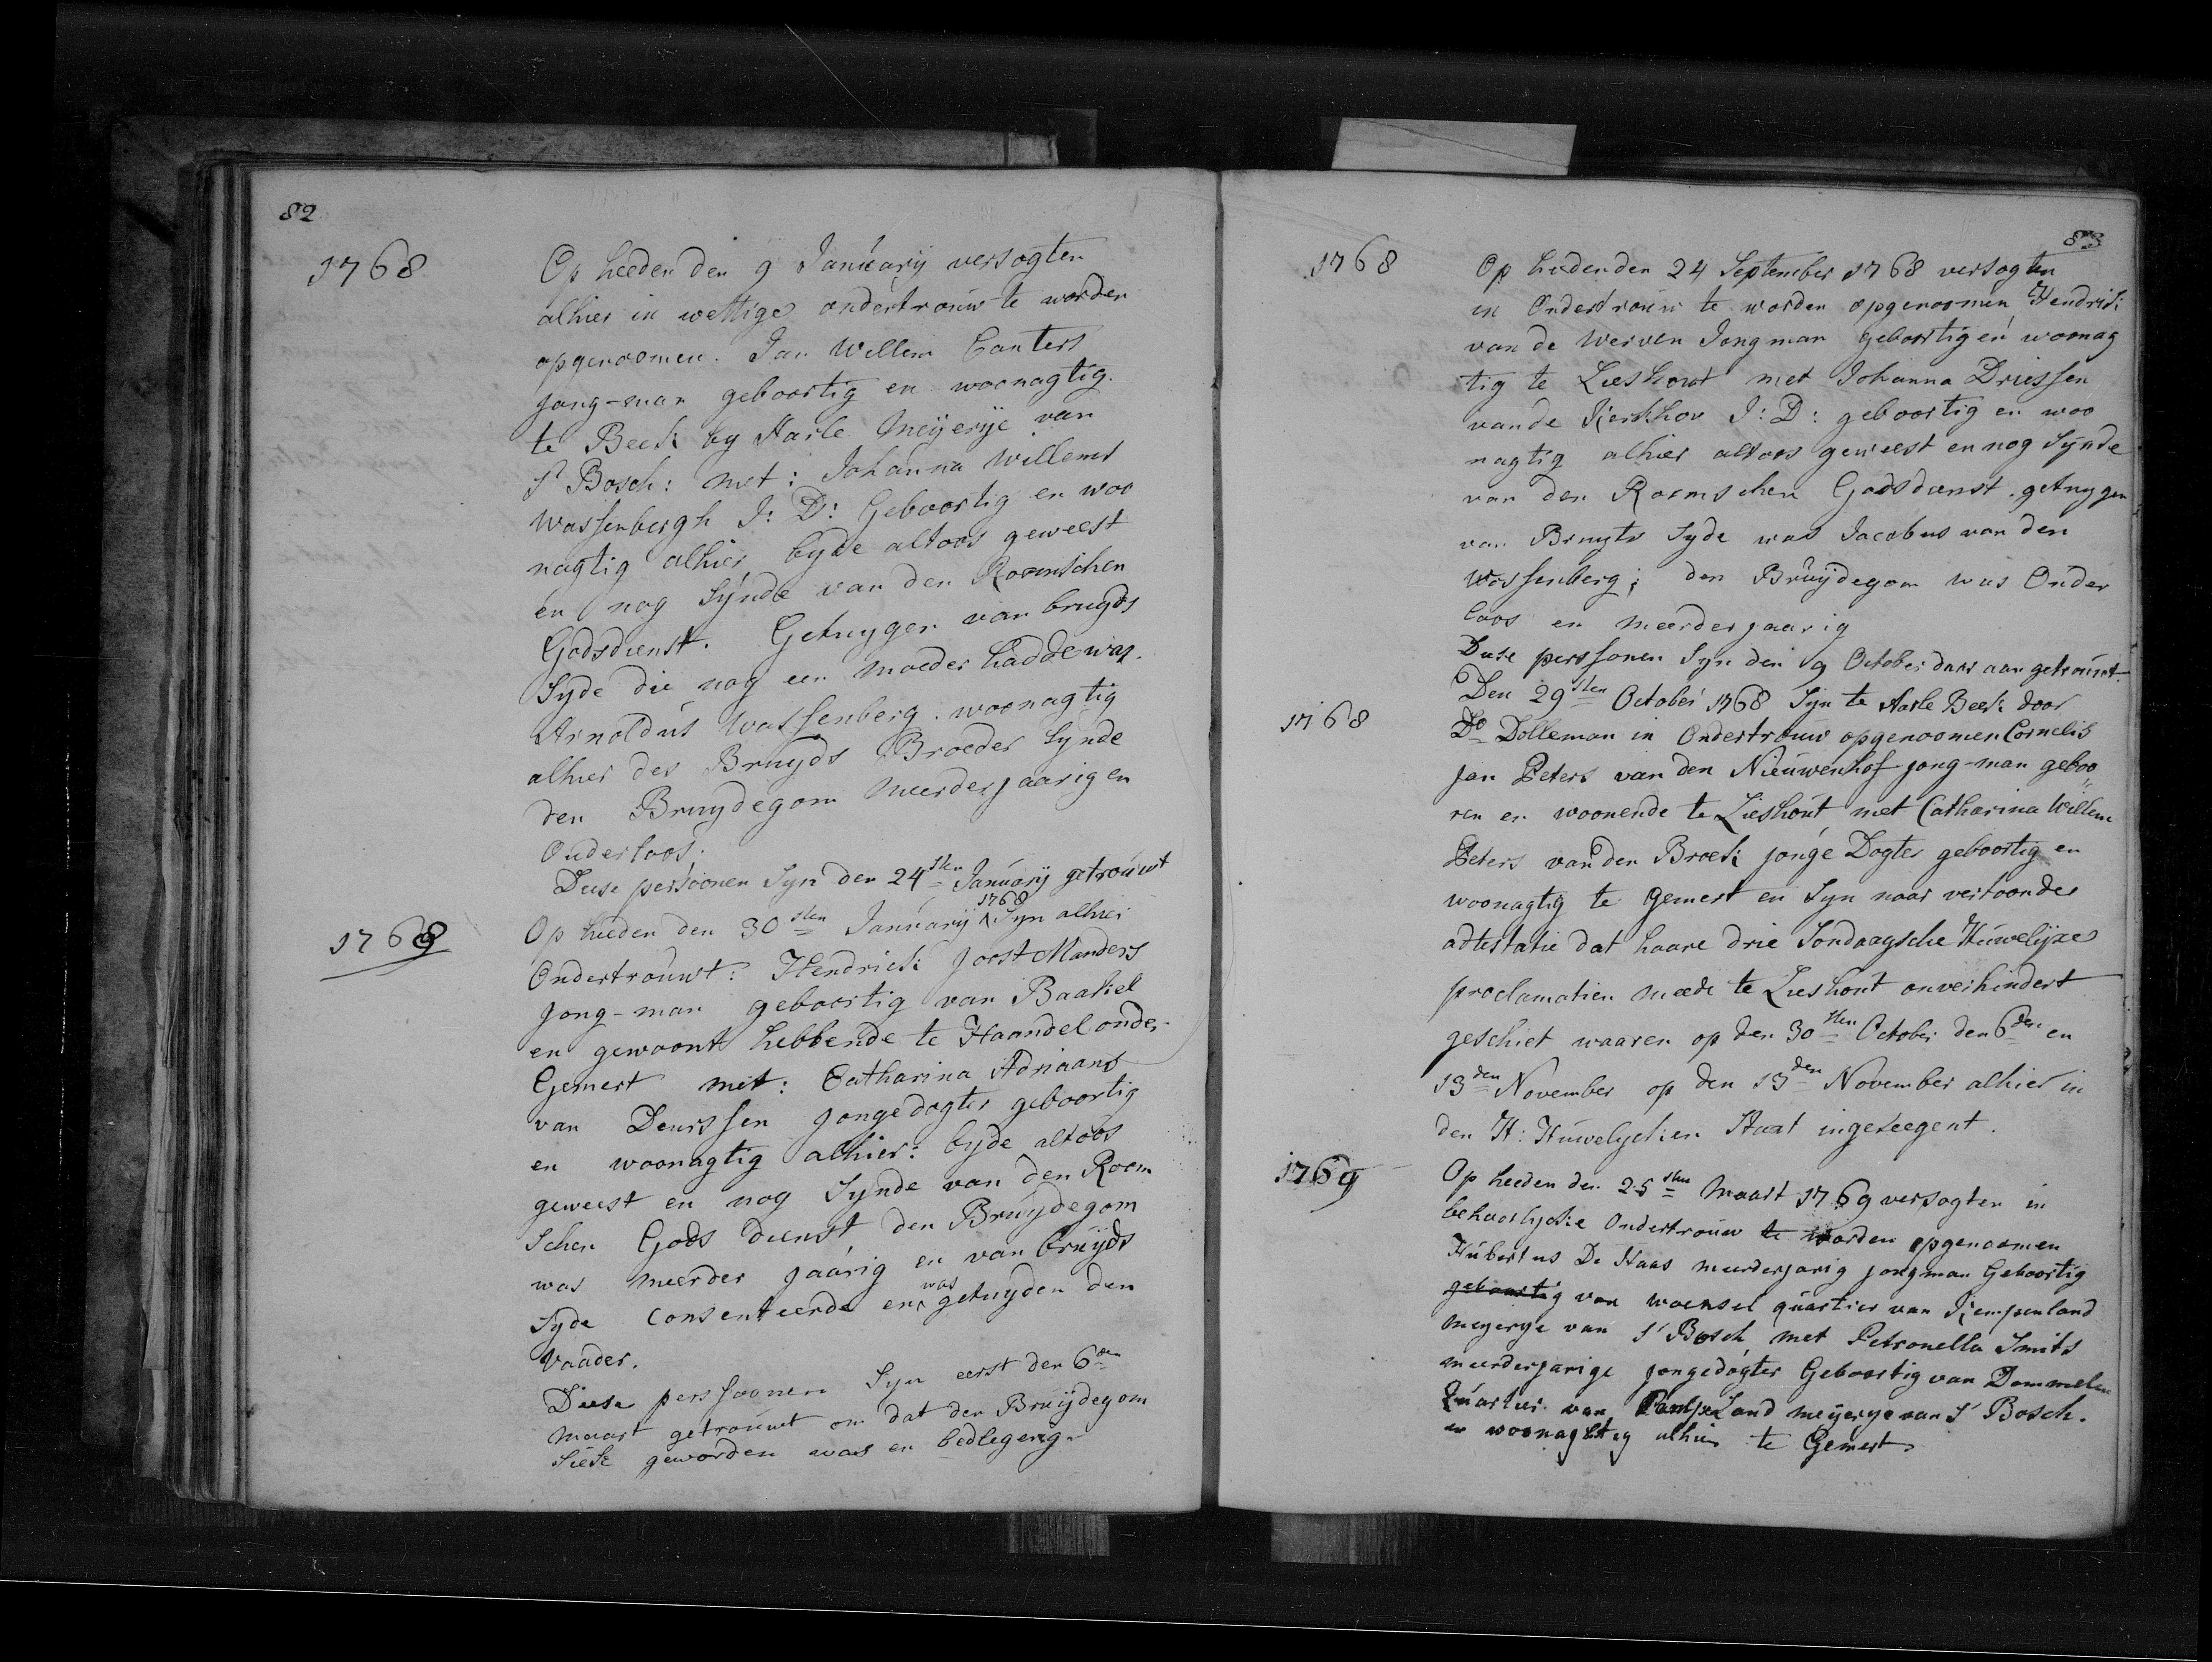 82
1768
Op heeden den 9 Januarij versogten
alhier in wettige ondertrouw te worden
opgenoomen. Jan Willem Canters
jong-man geboortig en woonagtig.
te Beek by Aarle Meijerije van
S' Bosch: met: Johanna Willems
Wassenbergh J: D: Geboortig en woo
nagtig alhier byde altoos geweest
en nog Synde van den Roemschen
Godsdienst. Getuygen van bruyds
Syde die nog een moeder hadde was.
Arnoldus Wassenberg. woonagtig
alhier des Bruyds Broeder Synde
den Bruydegom meerderjaarig en
Ouderloos.
Deese persoonen Syn den 24sten January getrouwt
1768
Op heeden den 30sten January 1768 Syn alhier
Ondertrouwt: Hendrick Joost Manders
Jong-man geboortig van Baakel
en gewoont hebbende te Haandel onder
Gemert met: Catharina Adriaans
van Deurssen jongedogter geboortig
en woonagtig alhier: byde altoos
geweest en nog Synde van den Roem
schen Gods dienst den Bruydegom
was meerder jaarig en van bruyds
Syde Consenteerde en was getuyden den
Vaader.
Diese perssoonen Syn eerst den 6den
Maart getrouwt om dat den Bruijdegom
Siek geworden was en bedlegerig.
83
1768
Op heeden den 24 September 1768 versogten
in Ondertrouw te worden opgenoomen Hendrik
van de Werven Jongman geboortig en woonag
tig te Lieshout met Johanna Driessen
van de Kerkhov J: D: geboortig en woo
nagtig alhier altoos geweest en nog Synde
van den Roemschen Godsdienst. getuygen
van Bruyts Syde was Jacobus van den
Wassenberg; den Bruijdegom was Ouder
loos en meerderjaarig
Dese perssonen Syn den 9 October daar aan getrouwt.
1768
Den 29sten October 1768 Syn te Aarle Beek door
Do Dolleman in Ondertrouw opgenoomen Cornelis
Jan Peters van den Nieuwenhof jong-man geboo
ren en woonende te Lieshout met Catharina Willem
Peters van den Broek jonge Dogter geboortig en
woonagtig te Gemert en Syn naar vertoonder
adtestatie dat haare drie Sondaagsche Huwelijxe
proclamatien meede te Lieshout onverhindert
geschiet waaren op den 30sten October den 6den en
13den November op den 13den November alhier in
den H: Huwelycken Staat ingezeegent.
1769
Op heeden den 25sten Maart 1769 versogten in
behoorlycke Ondertrouw te worden opgenoomen
Hubertus De Haas meerderjarig jongman Geboortig
geboortig van woensel quartier van Kempenland
meyerye van S' Bosch met Petronella Smits
meerderjarige jongedogter Geboortig van Dommelen
Quartier van Land meyerye van S' Bosch.
en woonagtig alhier te Gemert